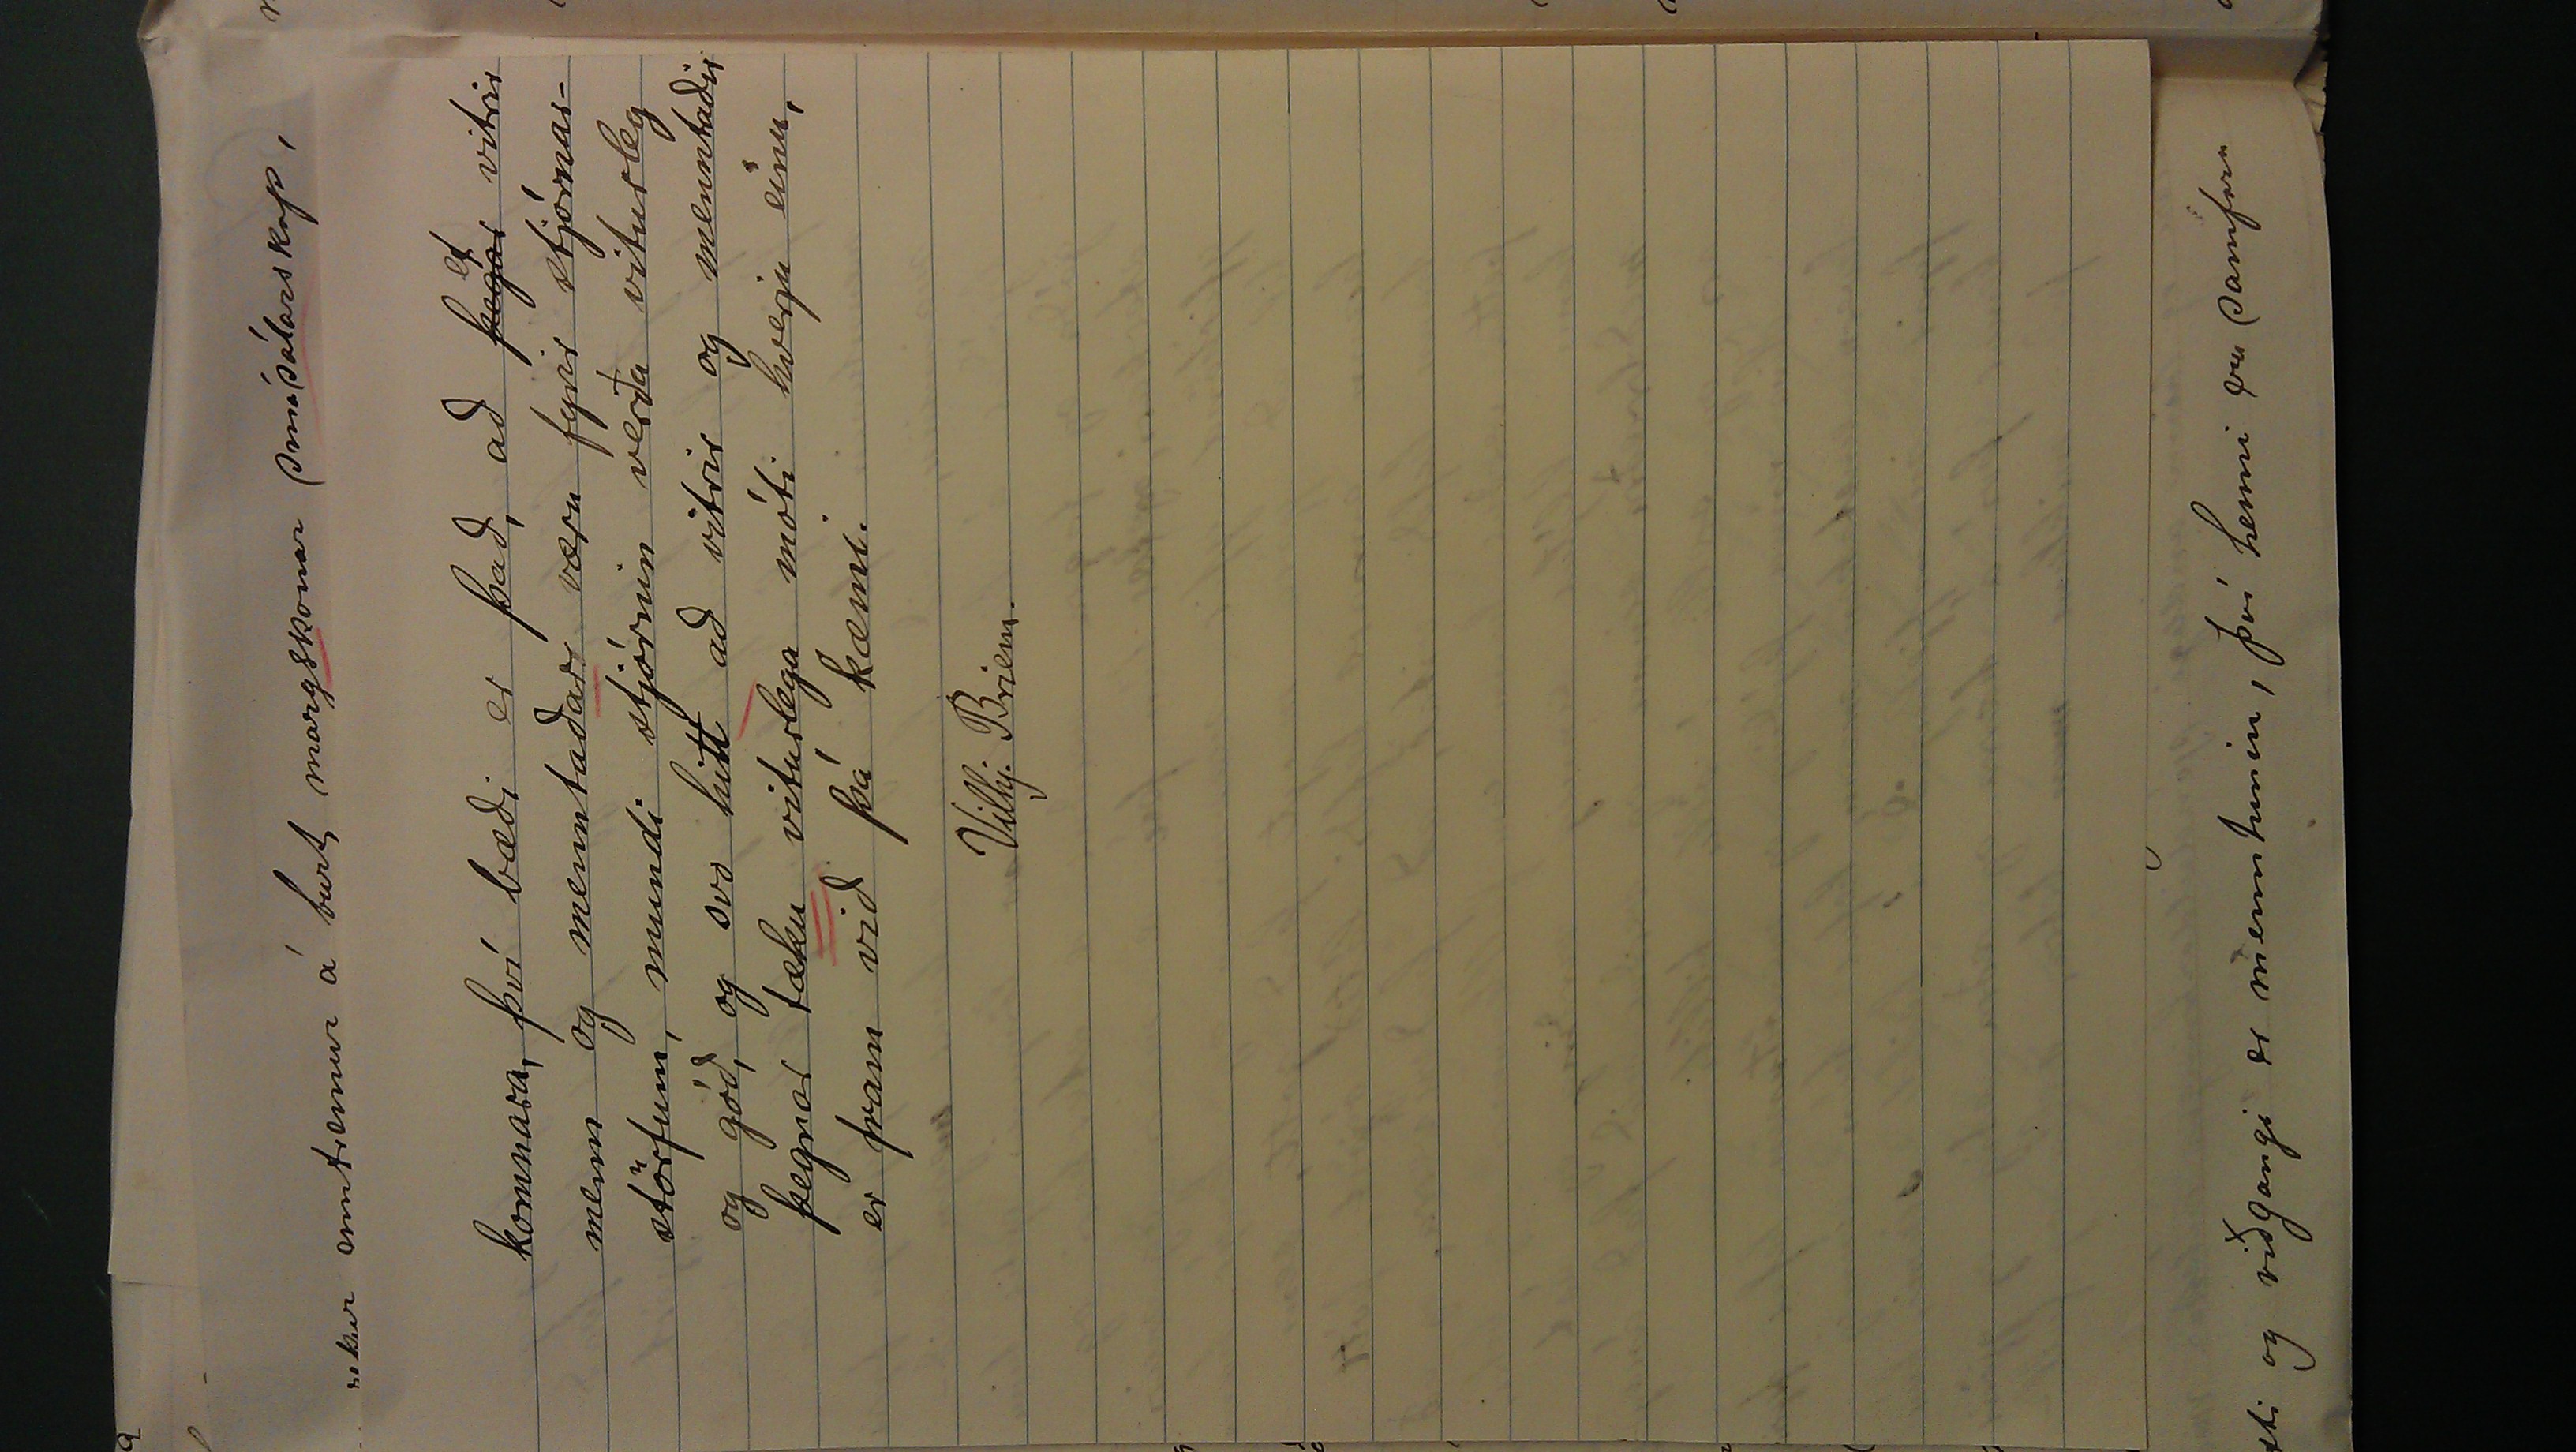 rekur menturnur á burt margskonar smásálarskap,
konnara, því bæði er það, að þegar ef vitrir
menn og menntaðarr væru fyrir stjórnar-
störfum, mundi stjórnin verða viturleg
og góð, og svo hitt að vitrir og menntaðir
þegnar tæku viturlega móti hverju einu,
er fram við þá kæmi.
Vilhj. Briem.
og viðgangi er menntunin, því henni eru samfara